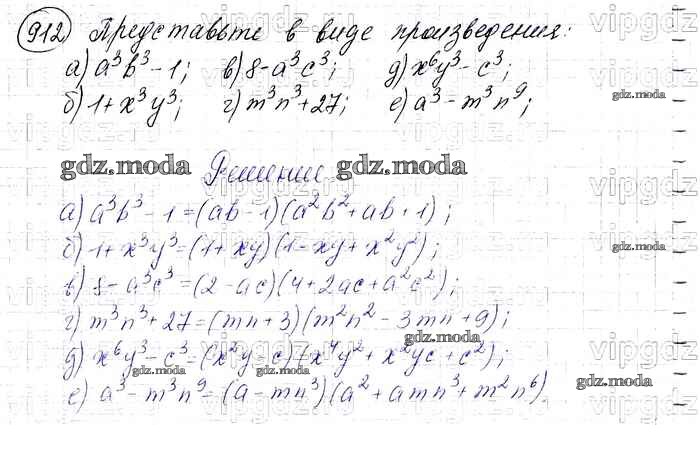 912 Представьте в виде произведения:
а) a³b³ - 1; в) 8 - a³c³; д) x⁶y³ - c³;
б) 1 + x³y³; г) m³n³ + 27; е) a³ - m³n⁹;
gdz.moda
gdz.moda Решение gdz.moda
а) a³b³ - 1 = (ab - 1)(a²b² + ab + 1);
б) 1 + x³y³ = (1 + xy)(1 - xy + x²y²);
gdz.moda
в) 8 - a³c³ = (2 - ac)(4 + 2ac + a²c²);
г) m³n³ + 27 = (mn + 3)(m²n² - 3mn + 9);
gdz.moda
д) x⁶y³ - c³ = (x²y - c)(x⁴y² + x²yc + c²);
gdz.moda gdz.moda gdz.moda
е) a³ - m³n⁹ = (a - mn³)(a² + amn³ + m²n⁶)
vipgdz
vipgdz
vipgdz
vipgdz
vipgdz
vipgdz